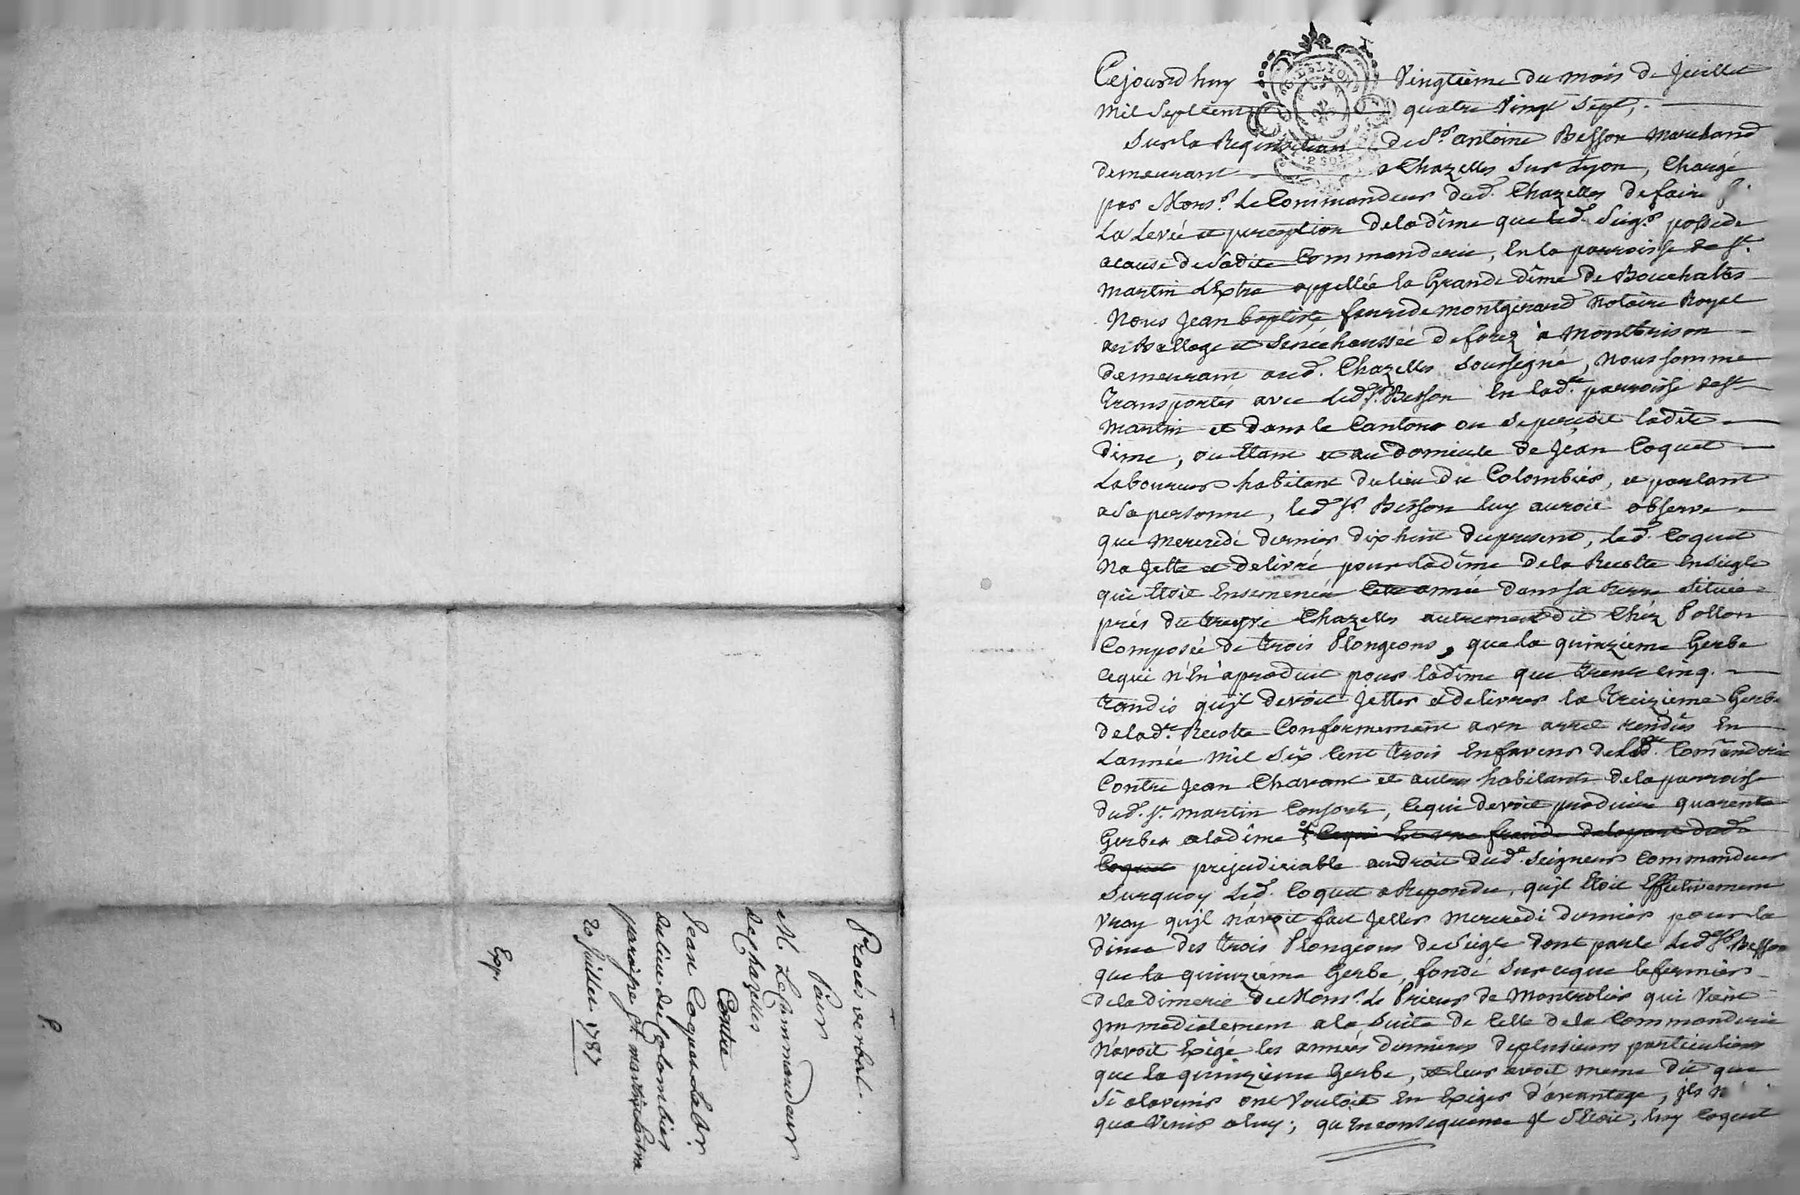 Procés verbal.
Pour
M. Le Commandeur
de chazelles
Contre
Jean Coquet Labr.
du lieu de Colombier
paroisse St. martin Lestra
20 Juillet 1787
Exp.
Cejourd'huy vingtième du mois de Juillet
mil Sept cent quatre vingt sept,
Sur la Requisition de Sr. antoine Besson marchand
demeurant a Chazelles Sur Lyon, Chargé
par Monsr. Le Commandeur dud. Chazelles de faire
La Levée et perception de la dîme que led. Seigr. possede
a cause de Sadite Commanderie, En la parroisse de St.
martin Lestra appellée la Grande dîme de Bouchalas
Nous Jean baptiste faure de montgirard Notaire Royal
au Bailliage et Sénéchaussée de forez à Montbrison
demeurant aud. Chazelles Soussigné, Nous somme
transportés avec led. Sr. Besson En lad. parroisse de St.
martin et dans le Cantons ou Se perçoit ladite
dime, ou étant et au domicile de Jean Coquet
Laboureur habitant du lieu du Colombier, et parlant
a Sa personne, led. Sr. Besson luy auroit observé
que mercredi dernier dix huit du present, led. Coquet
Na Jetté et delivré pour la dîme de la Recolte En seigle
qui Etoit Ensemencée Cette année dans Sa terre Située
près du treyve Chazelles autrement dit Chéz Pollon
Composée de trois Plongeons, que la quinzième Gerbe
Cequi n'En a produit pour la dîme que trente cinq.
tandis qu'jl devoit Jetter et delivrer la treizieme Gerbe
de lad. Recolte Conformement a un arret rendu En
Lannée mil Six Cent trois En faveur de lad. Comanderie
Contre Jean Chavant et autres habitants de la parroisse
dud. St. martin Consorts, Cequi devoit produire quarente
Gerbes a la dîme Cequi Est une fraude de la part dud.
Coquet prejudiciable au droit dud. Seigneur Commandeur
Surquoy Led. Coquet a Repondu, qu'jl Etoit Effectivement
vray qu'jl n'avoit fait Jetter mercredi dernier pour la
dime des trois Plongeons de Seigle dont parle led. Sr. Besson
que la quinzieme Gerbe, fondé Sur ceque le fermier
de la Dimerie de Monsr. Le Prieur de Montrotier qui vient
jmmediatement a la Suite de Celle de la Commanderie
N'avoit Exigé les années dernieres de plusieurs particuliers
que la quinzieme Gerbe, et leur avoit meme dit que
Si a lavenir on Vouloit En Exiger d'avantage, jls n'
qua Venir a luy; qu'En Consequence jl S'Etoit, luy Coquet